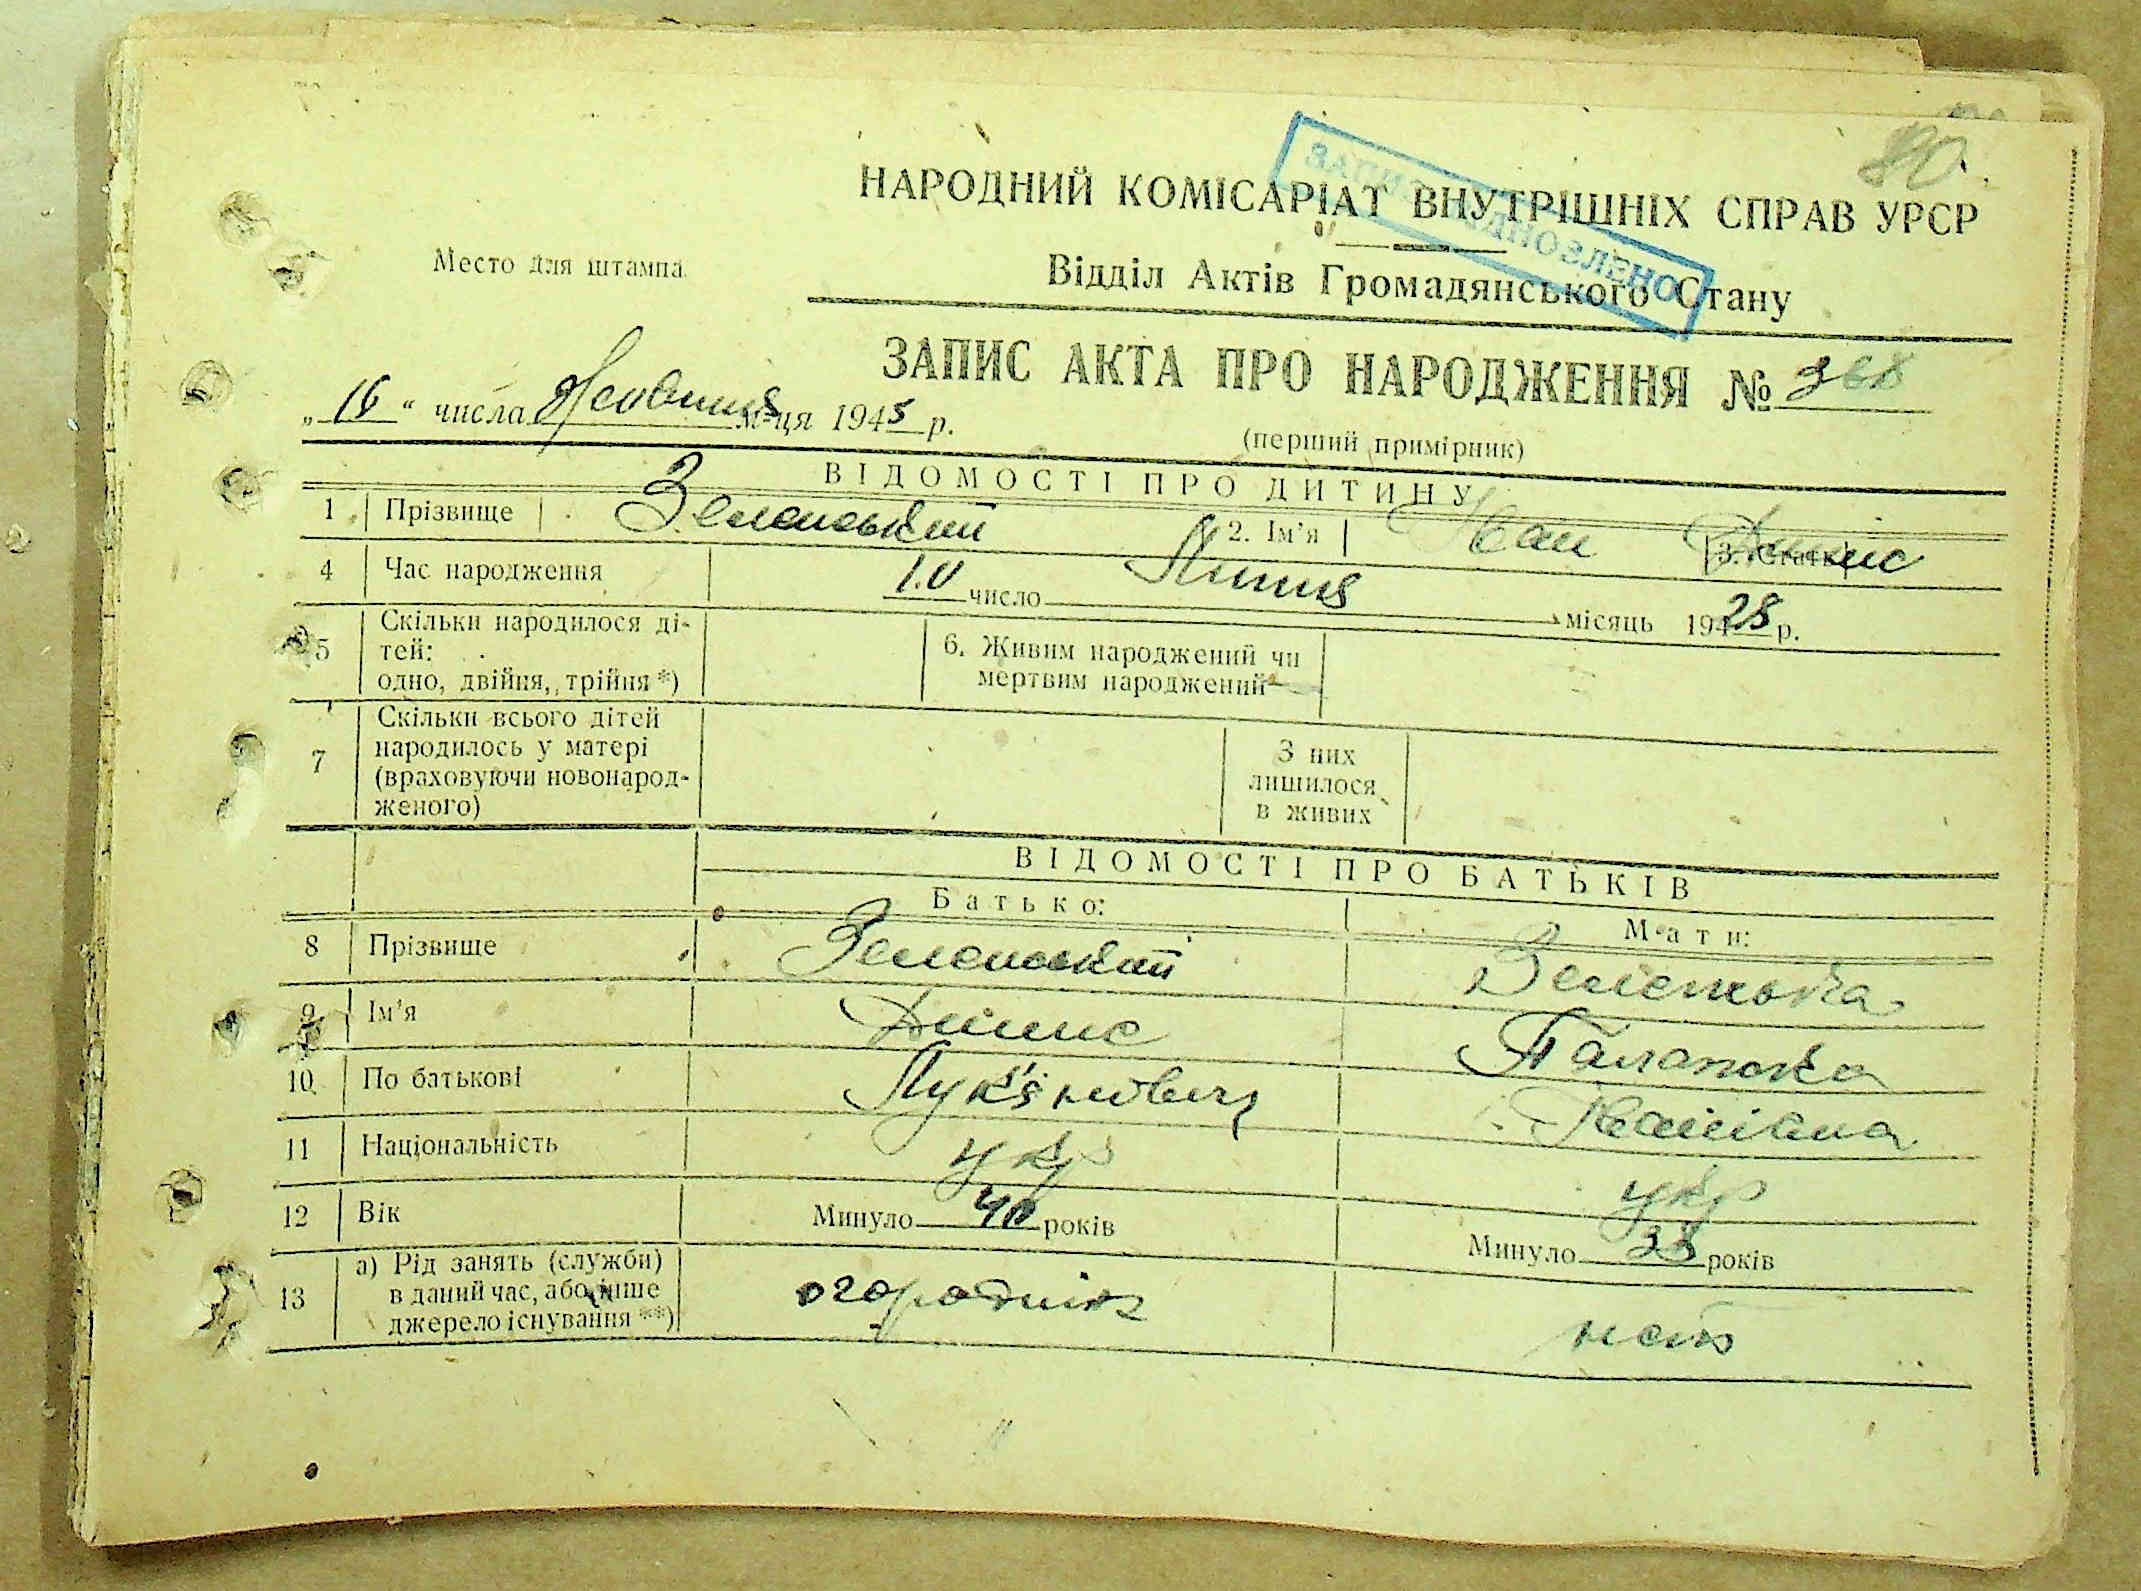 80.
НАРОДНИЙ КОМІСАРІАТ ВНУТРІШНІХ СПРАВ УРСР
ЗАПИС ВІДНОВЛЕНО
Место для штампа.
Відділ Актів Громадянського Стану
ЗАПИС АКТА ПРО НАРОДЖЕННЯ № 368
„16“ числа Жовтня м-ця 1945 р.
(перший примірник)
ВІДОМОСТІ ПРО ДИТИНУ
1. Прізвище Зеленський 2. Ім’я Іван 3. Стать
4 Час народження 10 число Липня місяць 1928 р.
5 Скільки народилося ді-
тей:
одно, двійня, трійня *)
6. Живим народжений чи
мертвим народжений
7 Скільки всього дітей
народилось у матері
(враховуючи новонарод-
женого)
З них
лишилося
в живих
ВІДОМОСТІ ПРО БАТЬКІВ
Батько: Мати:
8 Прізвище Зеленський Зеленська
9 Ім’я Денис Палажка
10 По батькові Лук'янович
11 Національність укр укр
12 Вік Минуло 40 років Минуло 38 років
13 а) Рід занять (служби)
в даний час, або інше
джерело існування **)
огороднік